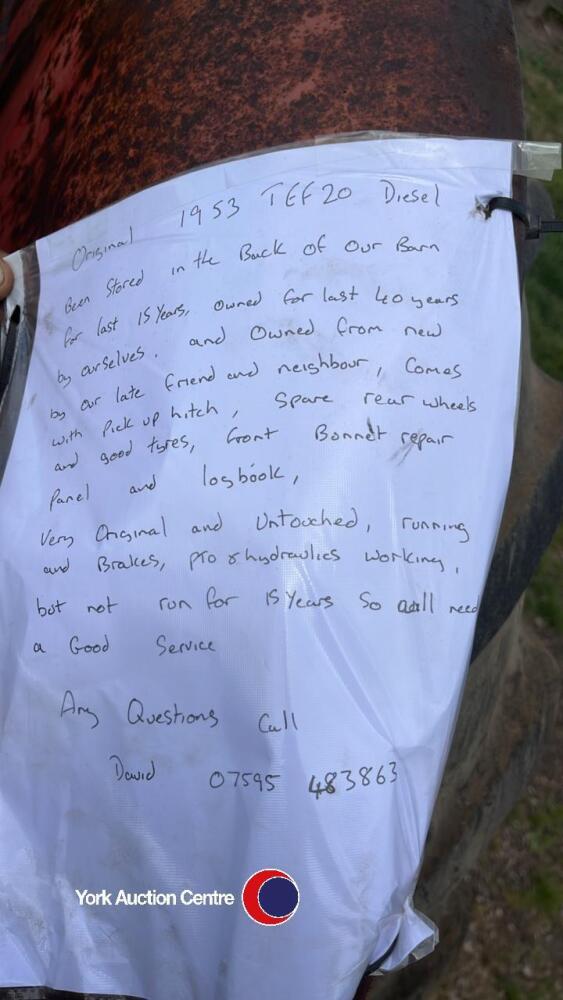 Original 1953 TEF20 Diesel
Been Stored in the Back of Our Barn
for last 15 Years, Owned for last 40 years
by ourselves. and Owned from new
by our late friend and neighbour, Comes
with Pick up hitch, Spare rear wheels
and good tyres, front Bonnet repair
Panel and logbook,
Very Original and Untouched, running
and Brakes, pto & hydraulics working,
but not run for 15 Years So will need
a Good Service
Any Questions Call
David 07595 483863
York Auction Centre